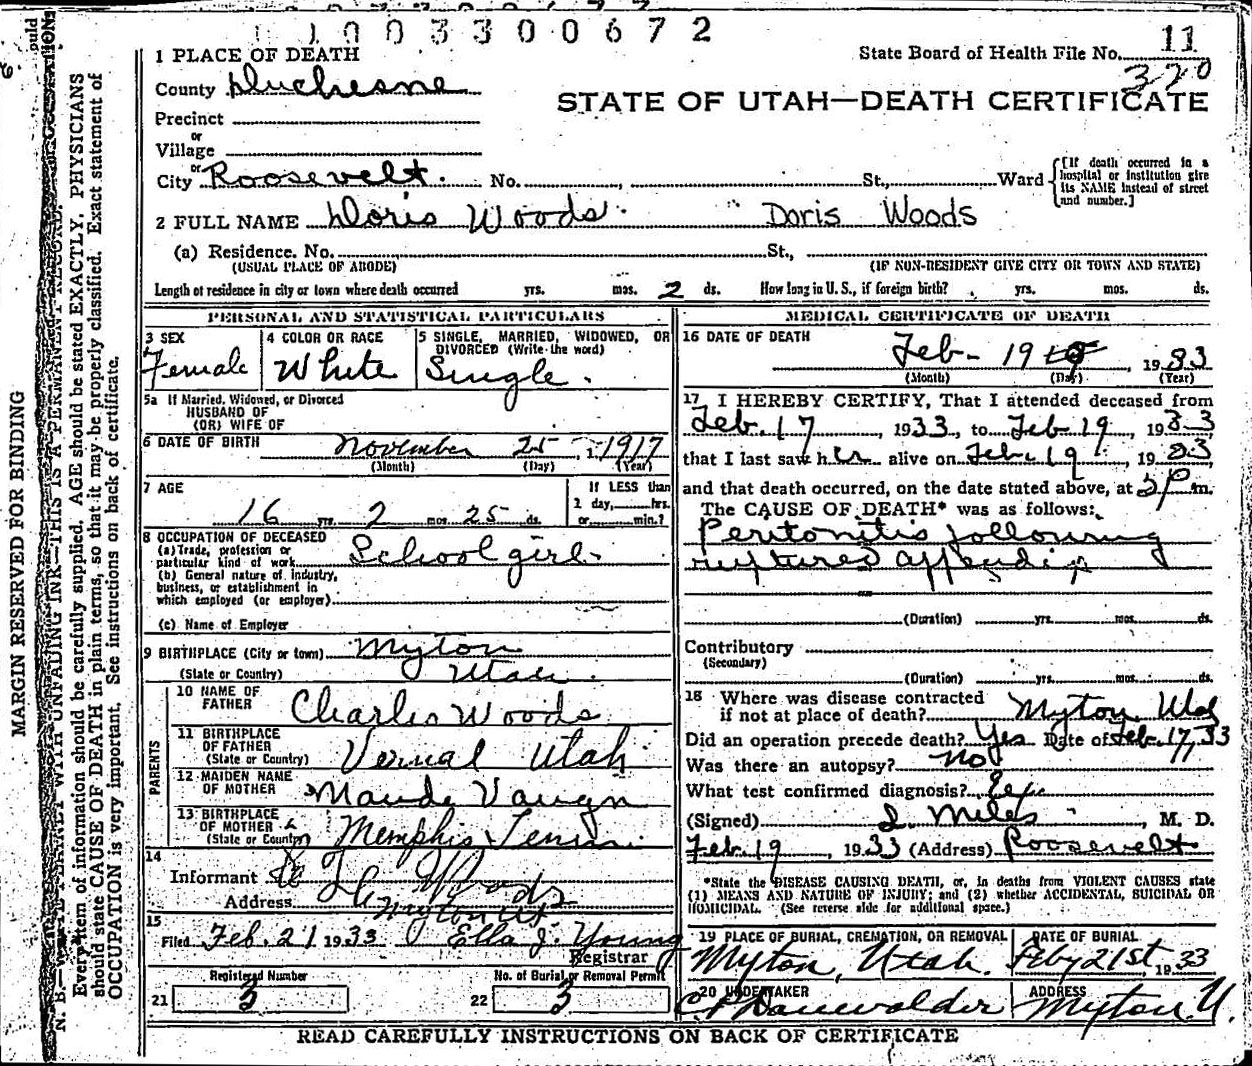 1003300672
11
State Board of Health File No.
320
1 PLACE OF DEATH
County Duchesne
STATE OF UTAH—DEATH CERTIFICATE
Precinct
or
Village
or
City Roosevelt. No. , St., Ward
[If death occurred in a hospital or institution give its NAME instead of street and number.]
2 FULL NAME Doris Woods. Doris Woods
(a) Residence. No. St.,
(USUAL PLACE OF ABODE) (IF NON-RESIDENT GIVE CITY OR TOWN AND STATE)
Length of residence in city or town where death occurred yrs. mos. 2 ds. How long in U. S., if foreign birth? yrs. mos. ds.
PERSONAL AND STATISTICAL PARTICULARS
3 SEX
Female
4 COLOR OR RACE
White
5 SINGLE, MARRIED, WIDOWED, OR
DIVORCED (Write the word)
Single.
5a If Married, Widowed, or Divorced
HUSBAND OF
(OR) WIFE OF
6 DATE OF BIRTH November 25, 1917
(Month) (Day) (Year)
7 AGE
16 yrs. 2 mos. 25 ds.
If LESS than
1 day, hrs.
or min.?
8 OCCUPATION OF DECEASED
(a) Trade, profession or
particular kind of work School girl
(b) General nature of industry,
business, or establishment in
which employed (or employer)
(c) Name of Employer
9 BIRTHPLACE (City or town) Myton
(State or Country) Utah.
PARENTS
10 NAME OF
FATHER Charles Woods
11 BIRTHPLACE
OF FATHER
(State or Country) Vernal Utah
12 MAIDEN NAME
OF MOTHER Maude Vaugn
13 BIRTHPLACE
OF MOTHER
(State or Country) Memphis Tenn.
14
Informant Woods
Address Myton Ut
15
Filed Feb. 21 1933 Ella J. Young
Registrar
Registered Number
21 3
No. of Burial or Removal Permit
22 3
MEDICAL CERTIFICATE OF DEATH
16 DATE OF DEATH
Feb- 19 1933
(Month) (Day) (Year)
17 I HEREBY CERTIFY, That I attended deceased from
Feb. 17, 1933, to Feb 19, 1933
that I last saw her alive on Feb. 19, 1933,
and that death occurred, on the date stated above, at 3 P m.
The CAUSE OF DEATH* was as follows:
Peritonitis following
ruptured appendix
(Duration) yrs. mos. ds.
Contributory
(Secondary)
(Duration) yrs. mos. ds.
18 Where was disease contracted
if not at place of death? Myton, Utah
Did an operation precede death? Yes Date of Feb. 17, 33
Was there an autopsy? no
What test confirmed diagnosis?
(Signed) Miles, M. D.
Feb. 19, 1933 (Address) Roosevelt
*State the DISEASE CAUSING DEATH, or, in deaths from VIOLENT CAUSES state
(1) MEANS AND NATURE OF INJURY; and (2) whether ACCIDENTAL, SUICIDAL OR
HOMICIDAL. (See reverse side for additional space.)
19 PLACE OF BURIAL, CREMATION, OR REMOVAL
Myton, Utah.
DATE OF BURIAL
Feby 21st, 1933
20 UNDERTAKER
ADDRESS
Myton, U.
READ CAREFULLY INSTRUCTIONS ON BACK OF CERTIFICATE
MARGIN RESERVED FOR BINDING
N. B.—WRITE PLAINLY WITH UNFADING INK—THIS IS A PERMANENT RECORD.
Every item of information should be carefully supplied. AGE should be stated EXACTLY. PHYSICIANS
should state CAUSE OF DEATH in plain terms, so that it may be properly classified. Exact statement of
OCCUPATION is very important. See instructions on back of certificate.